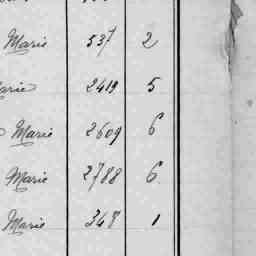 Marie 537 2
Marie 2419 5
Marie 2609 6
Marie 2788 6
Marie 348 1